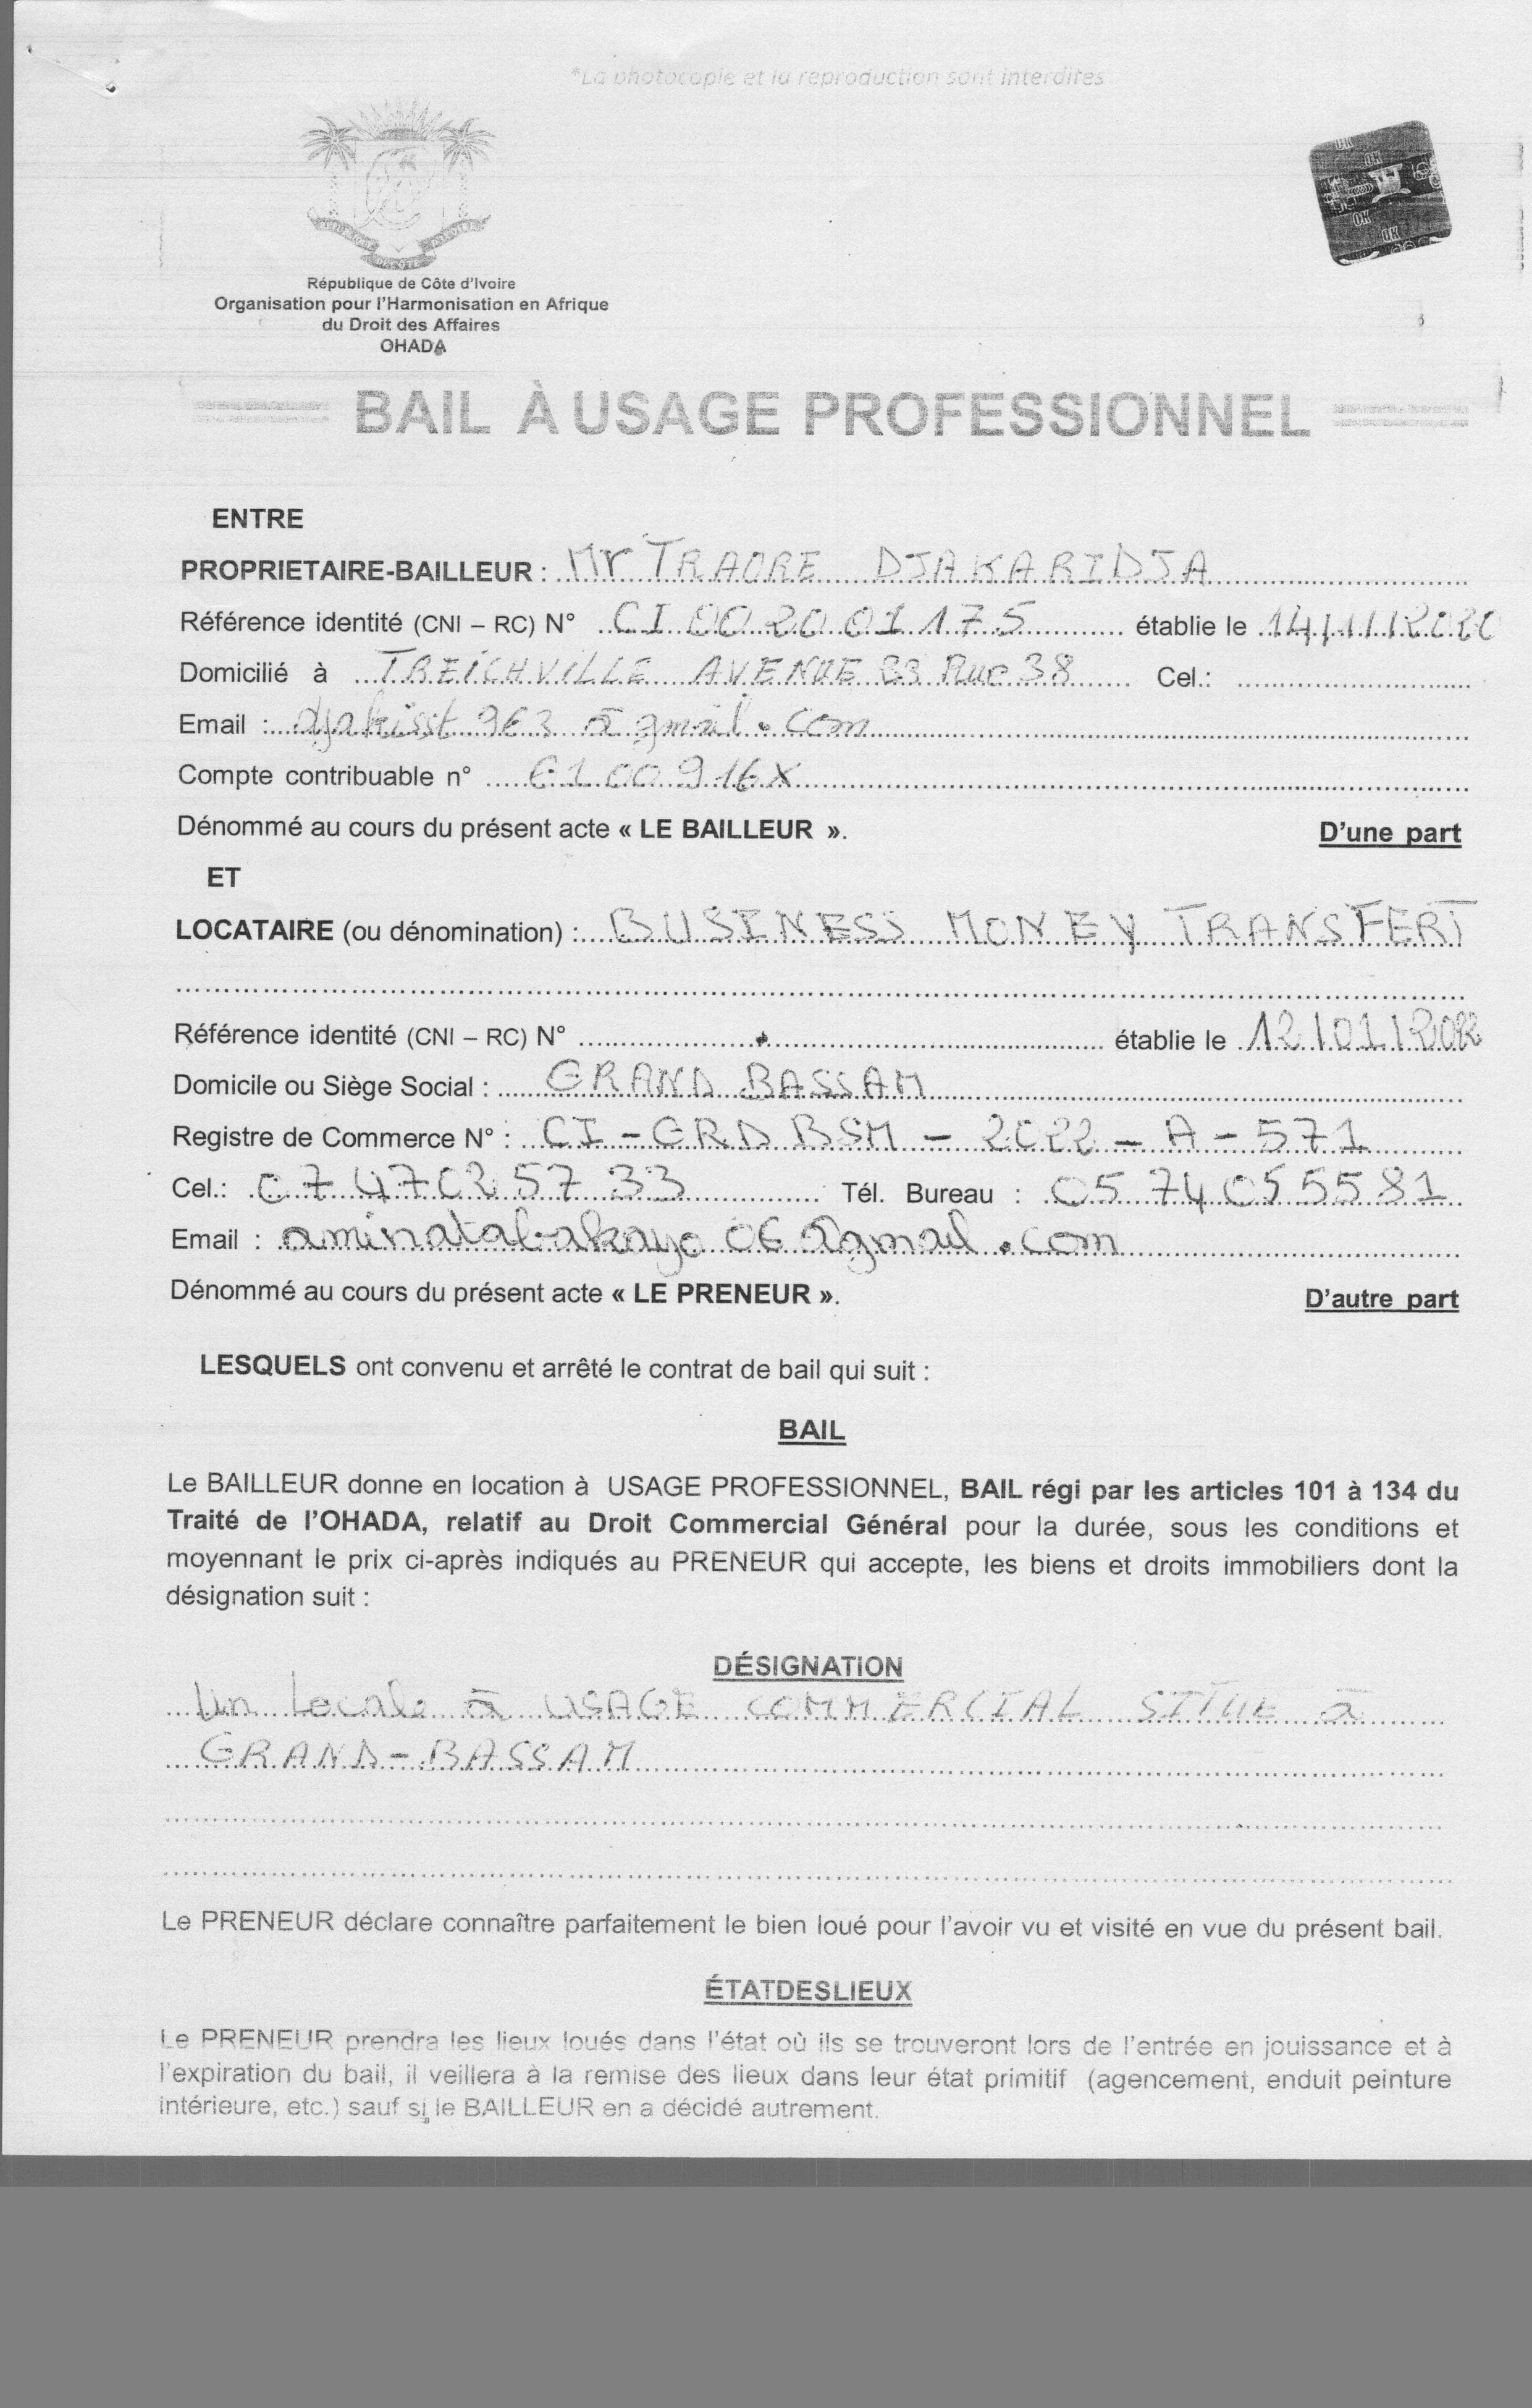 *La photocopie et la reproduction sont interdites
République de Côte d'Ivoire
Organisation pour l'Harmonisation en Afrique
du Droit des Affaires
OHADA
BAIL À USAGE PROFESSIONNEL
ENTRE
PROPRIETAIRE-BAILLEUR : Mr TRAORE DJAKARIDJA
Référence identité (CNI – RC) N° CI 00 20 01 175 établie le 14/11/2020
Domicilié à TREICHVILLE AVENUE 23 Rue 38 Cel.:
Email : djakisst 963 à gmail.com
Compte contribuable n° 6100916X
Dénommé au cours du présent acte « LE BAILLEUR ». D'une part
ET
LOCATAIRE (ou dénomination) : BUSINESS MONEY TRANSFERT
Référence identité (CNI – RC) N° établie le 12/01/2022
Domicile ou Siège Social : GRAND BASSAM
Registre de Commerce N° : CI - GRD BSM - 2022 - A - 571
Cel.: 07 47 02 57 33 Tél. Bureau : 05 74 05 55 81
Email : aminatabakayo 06 @gmail.com
Dénommé au cours du présent acte « LE PRENEUR ». D'autre part
LESQUELS ont convenu et arrêté le contrat de bail qui suit :
BAIL
Le BAILLEUR donne en location à USAGE PROFESSIONNEL, BAIL régi par les articles 101 à 134 du
Traité de l'OHADA, relatif au Droit Commercial Général pour la durée, sous les conditions et
moyennant le prix ci-après indiqués au PRENEUR qui accepte, les biens et droits immobiliers dont la
désignation suit :
DÉSIGNATION
Un Locale à USAGE COMMERCIAL SITUE à
GRAND-BASSAM
Le PRENEUR déclare connaître parfaitement le bien loué pour l'avoir vu et visité en vue du présent bail.
ÉTATDESLIEUX
Le PRENEUR prendra les lieux loués dans l'état où ils se trouveront lors de l'entrée en jouissance et à
l'expiration du bail, il veillera à la remise des lieux dans leur état primitif (agencement, enduit peinture
intérieure, etc.) sauf si le BAILLEUR en a décidé autrement.